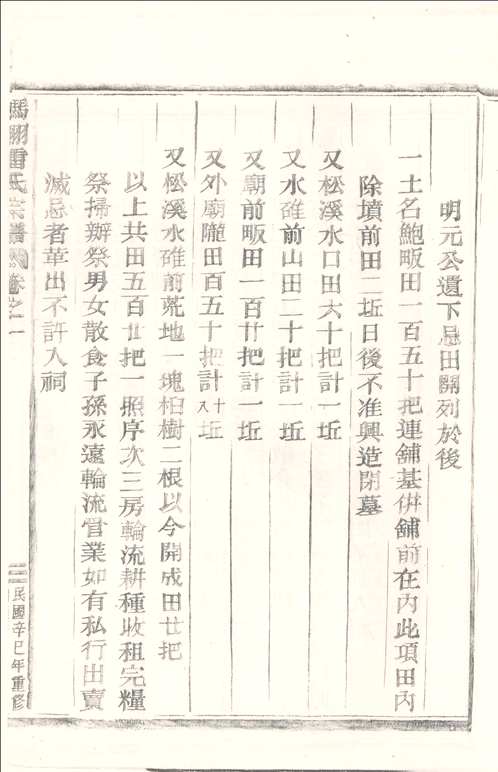 明元公遺下忌田開列於後
一土名鮑畈田一百五十把連舖基併舖前在內此項田內
除墳前田二坵日後不准興造閉墓
又松溪水口田六十把計一坵
又水碓前山田二十把計一坵
又廟前畈田一百廿把計一坵
又外廟隴田百五十把計十八坵
又松溪水碓前荒地一塊桕樹二根以今開成田廿把
以上共田五百廿把一照序次三房輪流耕種收租完糧
祭掃辦祭男女散食子孫永遠輪流管業如有私行出賣
滅忌者革出不許入祠
馮翊雷氏宗譜 卷之一
民國辛巳年重修